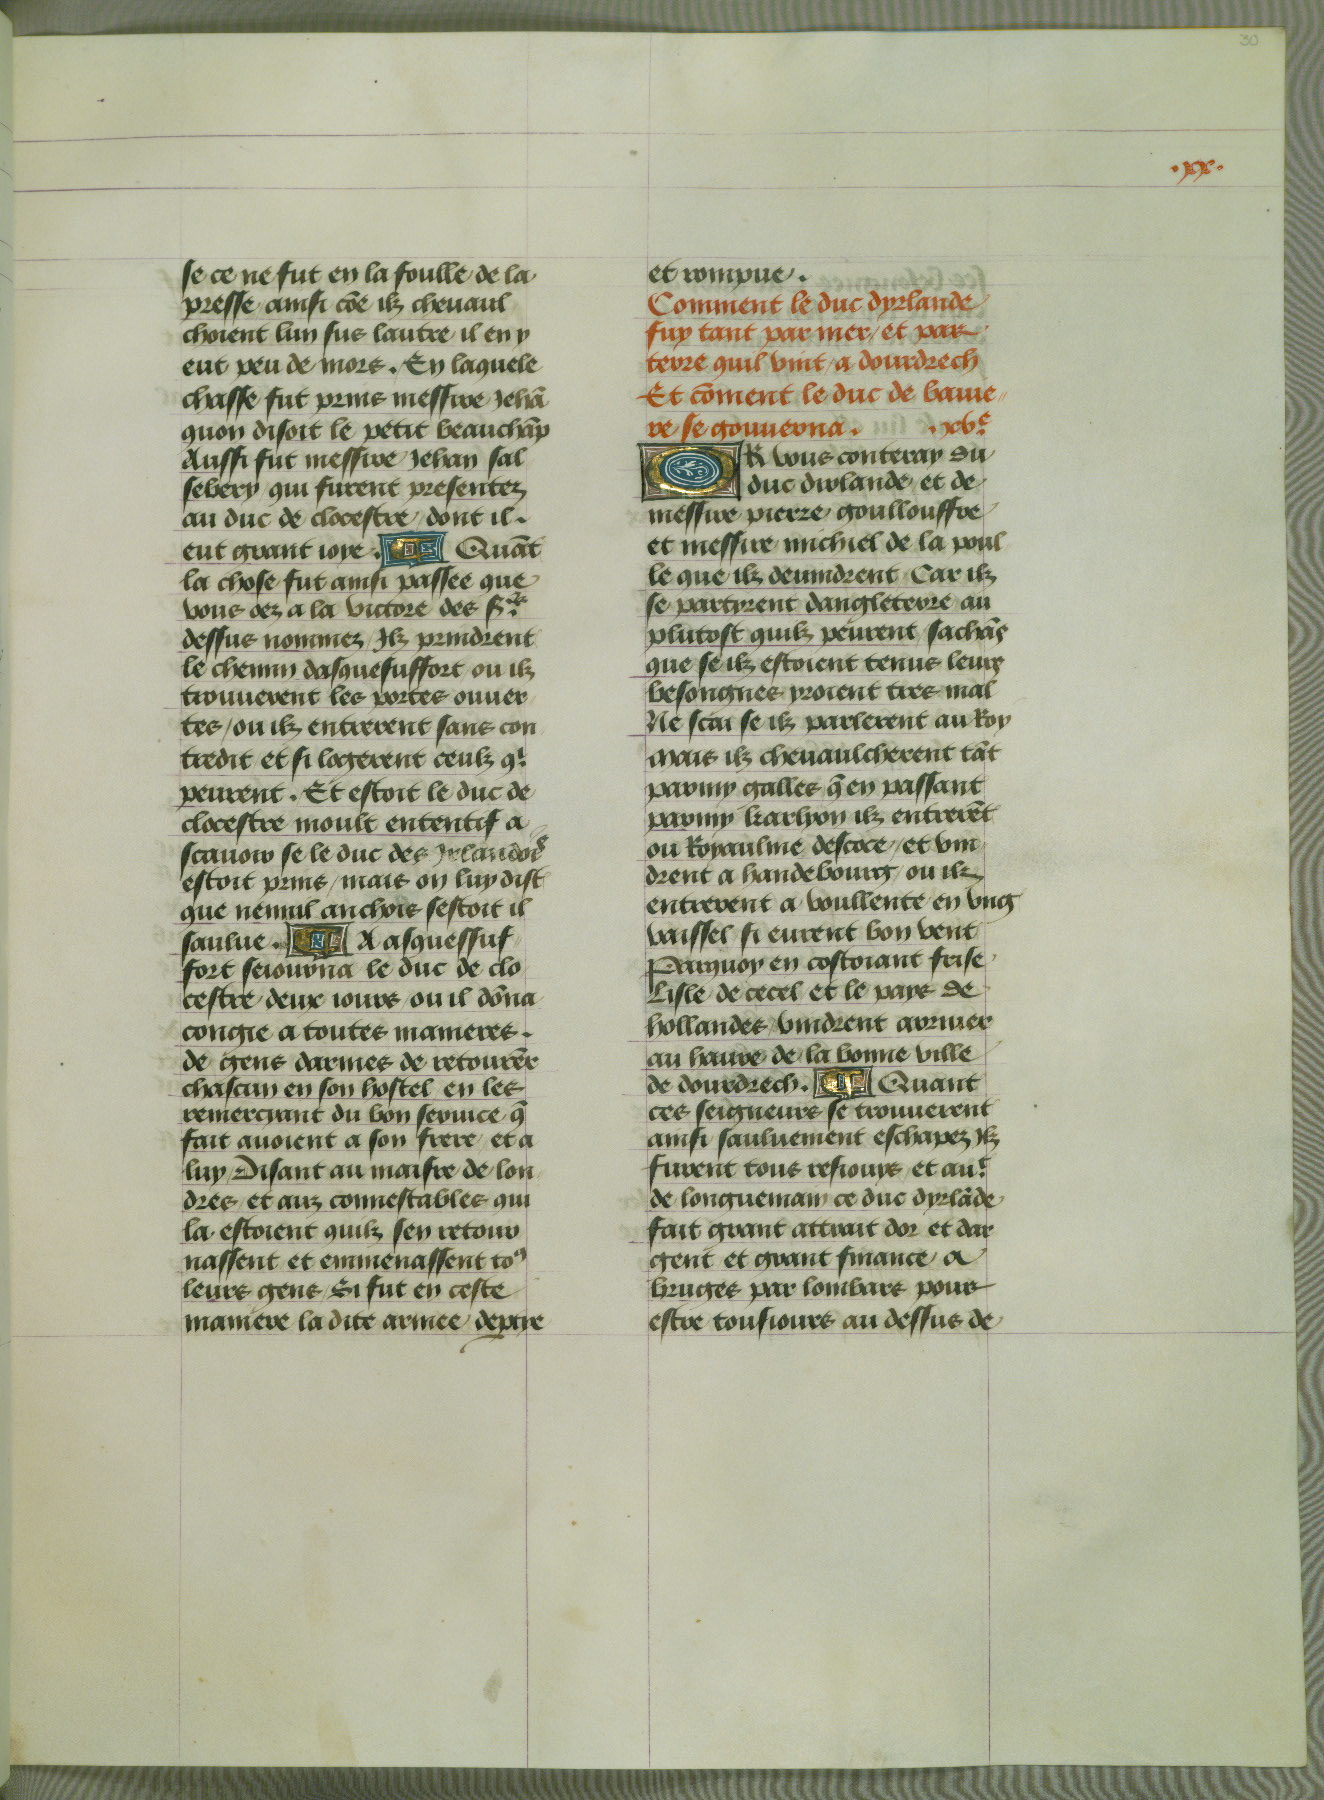 30
·xx·
se ce ne fut en la foulle de la
presse ainsi cõe ilz cheuaul
choient lun sus lautre il en y
eut peu de mors. En laquele
chasse fut prins messire Jehã
quon disoit le petit beauchãp
Aussi fut messire Jehan sal
sebery qui furent presentez
au duc de clocestre / dont il.
eut grant ioye. Quãt
la chose fut ainsi passee que
vous oez a la victore des srs
dessus nommez / Ilz prindrent
le chemin dasquesuffort ou ilz
trouuerent les portes ouuer
tes / ou ilz entrerent sans con
tredit et si logerent ceulz qi
peurent. Et estoit le duc de
clocestre moult ententif a
scauoir se le duc des Irlandois
estoit prins / mais on luy dist
que nennil anchois sestoit il
saulue. A asquessuf
fort seiourna le duc de clo
cestre deux iours / ou il dõna
congie a toutes manieres.
de gens darmes de retourẽr
chascun en son hostel en les
remerciant du bon seruice q̃
fait auoient a son frere / et a
luy / Disant au maisre de lon
dres / et aux connestables qui
la estoient quilz sen retour
nassent et emmenassent to9
leurs gens / Si fut en ceste
maniere la dite armee deptye
et rompue.
Comment le duc dyrlande
fuy tant par mer / et par
terre quil vint / a dourdrech
Et cõment le duc de bauie
re se gouuerna. .xve
OR vous conteray du
duc dirlande / et de
messire pierre goullouffre
et messire michiel de la poul
le que ilz deuindrent / Car ilz
se partyrent dangleterre au
plutost quilz peurent / sachãs
que se ilz estoient tenus leurs
besongnes yroient tres mal
Ne scai se ilz parlerent au Roy
mais ilz cheuaulcherent tãt
parmy galles q̃ en passant
parmy karlyon ilz entrerẽt
ou Royaulme descoce / et vin
drent a handebourg / ou ilz
entrerent a voullente en vng
vaissel si eurent bon vent
Parquoy en costoiant frise
Lisle de cecel et le pays de
hollandes / vindrent arriuer
au haure de la bonne ville
de dourdrech. Quant
ces seigneurs se trouuerent
ainsi sauluement eschapez Ilz
furent tous resiouys / et au.
de longuemain ce duc dyrlãde
fait grant attrait dor et dar
gent et grant finance / a
bruges par lombars pour
estre tousiours au dessus de